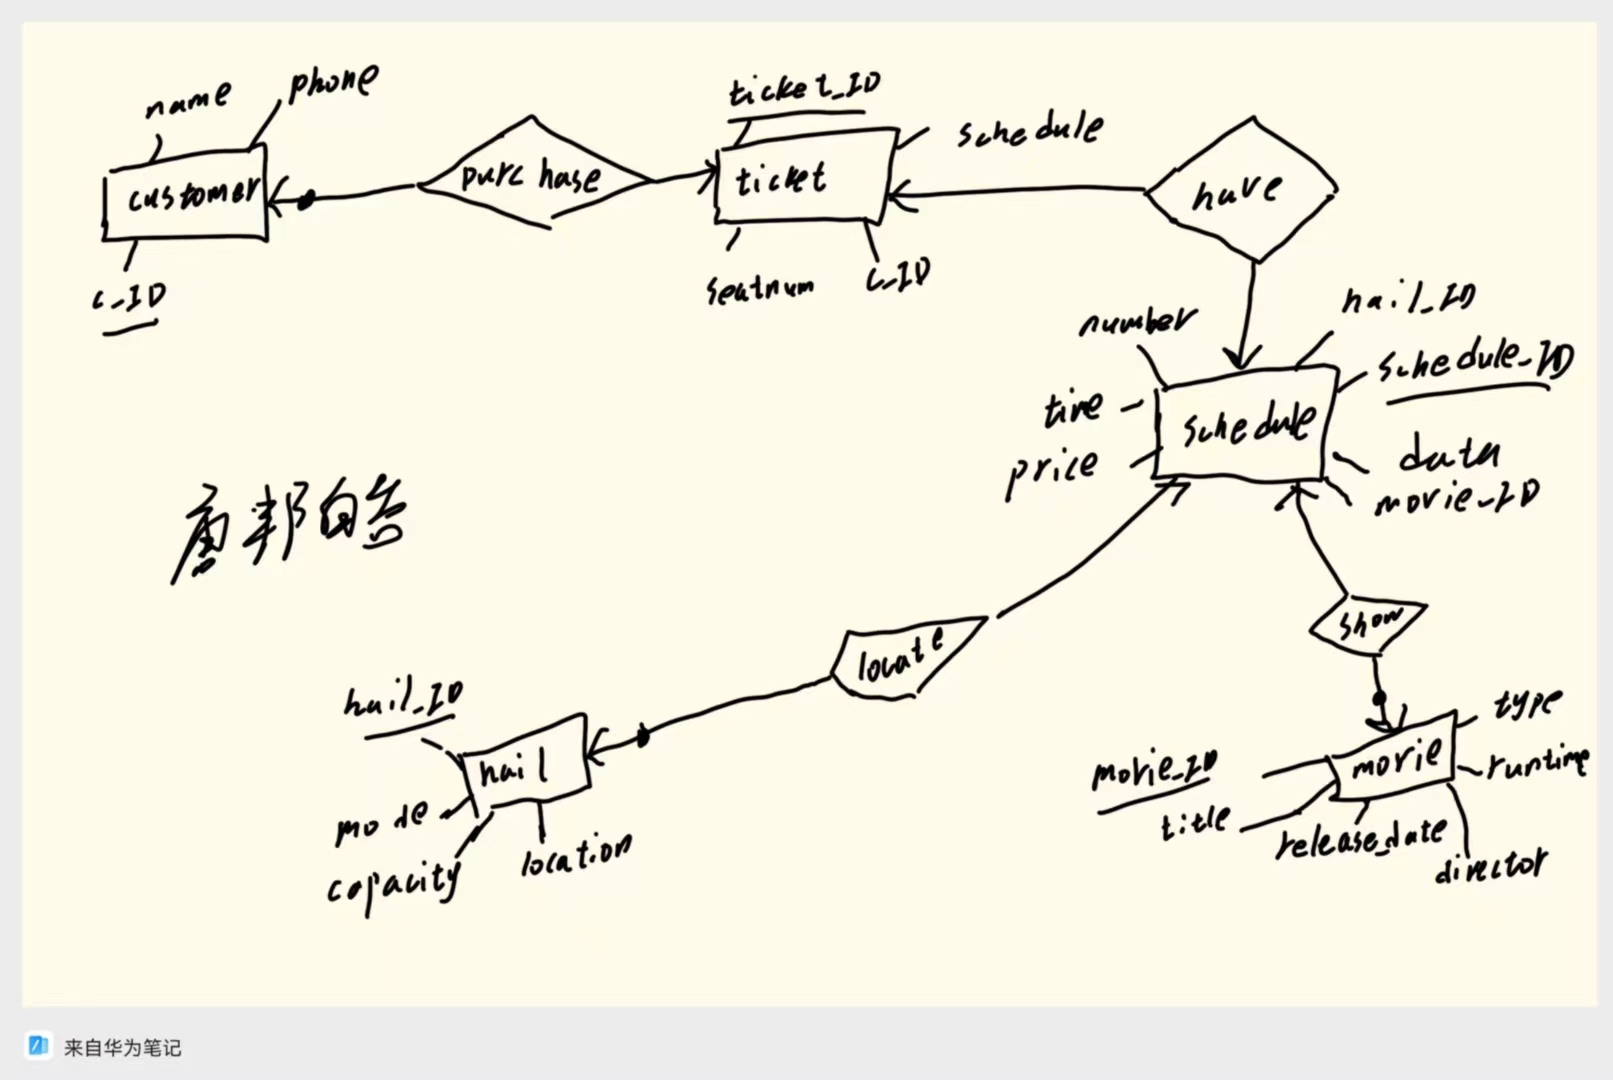 name
phone
customer
c_ID
purchase
ticket_ID
ticket
schedule
seatnum
c_ID
have
number
hail_ID
schedule_ID
time
schedule
price
data
movie_ID
locate
show
hail_ID
hail
mode
capacity
location
movie_ID
movie
type
runtime
title
release_date
director
来自华为笔记